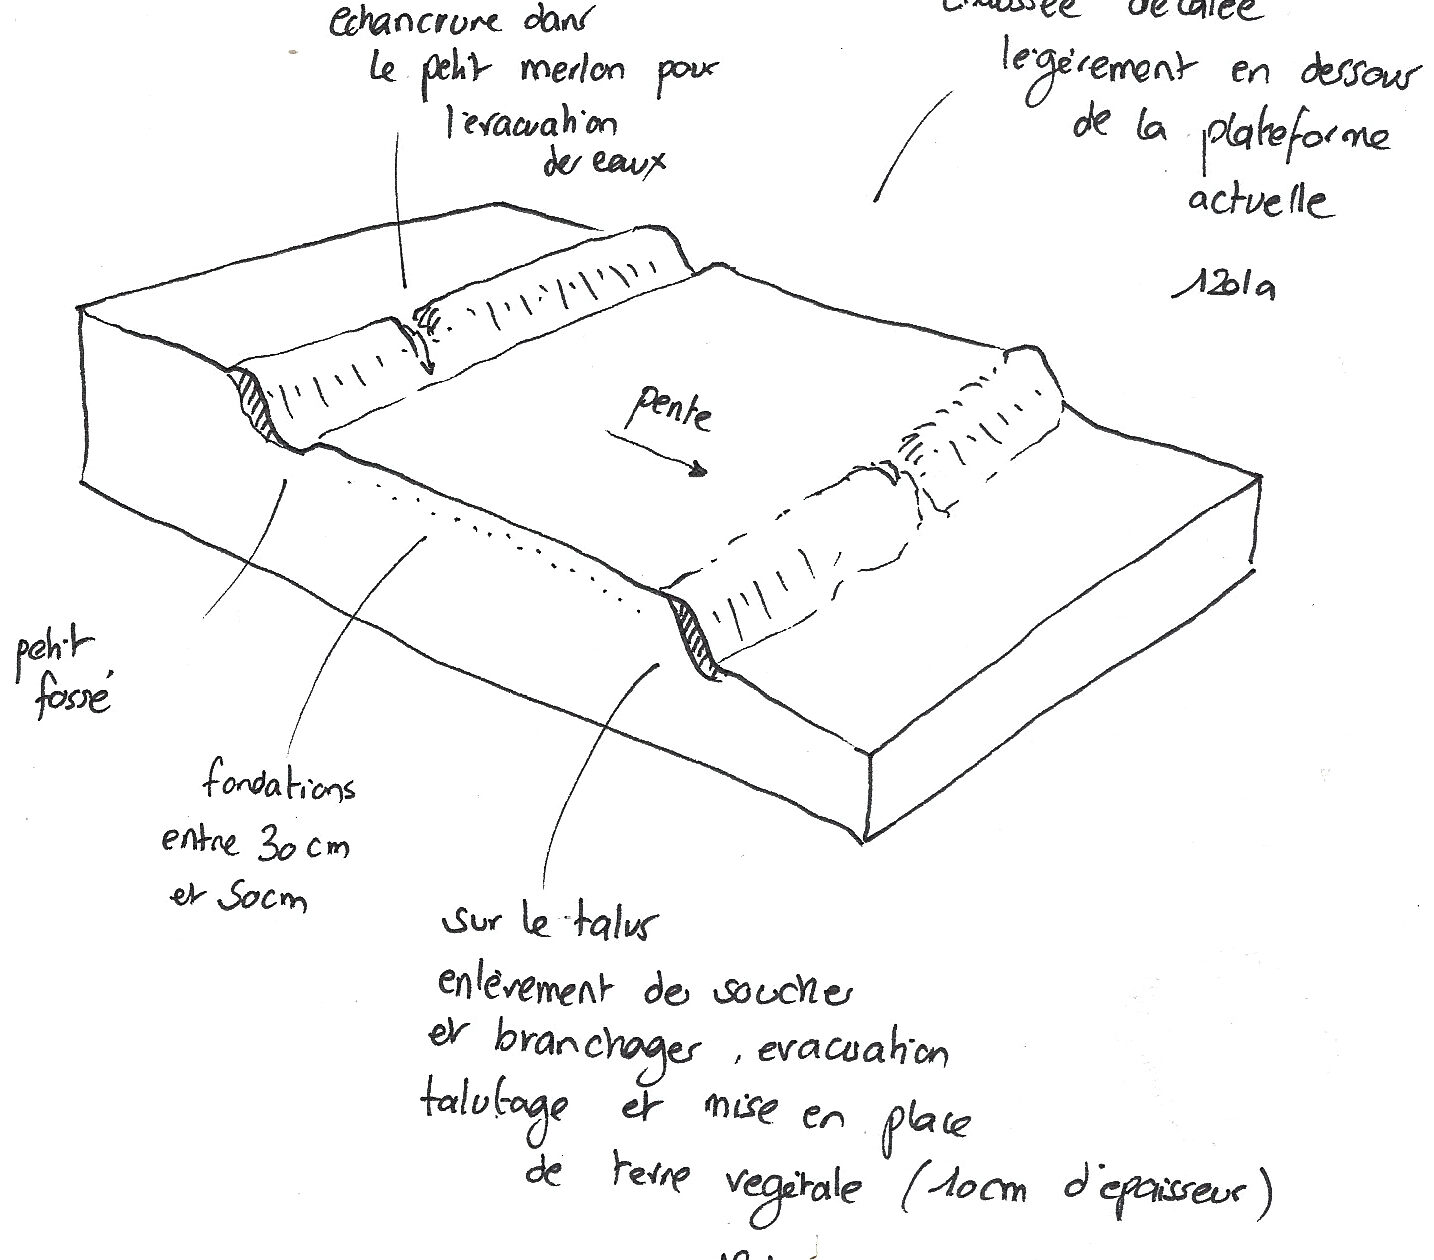 echancrure dans
le petit merlon pour
l'evacuation
des eaux
chaussée décalée
légérement en dessous
de la plateforme
actuelle
pente
petit
fossé
fondations
entre 30 cm
et 50cm
sur le talus
enlèvement de souches
et branchages, evacuation
talutage et mise en place
de terre vegétale (10cm d'épaisseur)